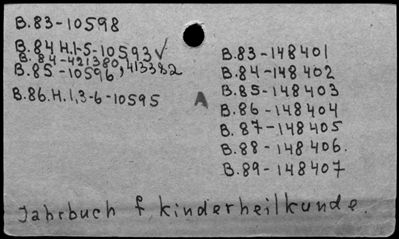 B.83-10598
B.84 H.1-5-10593 √
B.84-421380, 413382
B.85-10596
B.86.H.1,3-6-10595
A
B.83-148401
B.84-148402
B.85-148403
B.86-148404
B.87-148405
B.88-148406.
B.89-148407
Jahrbuch f. kinderheilkunde.